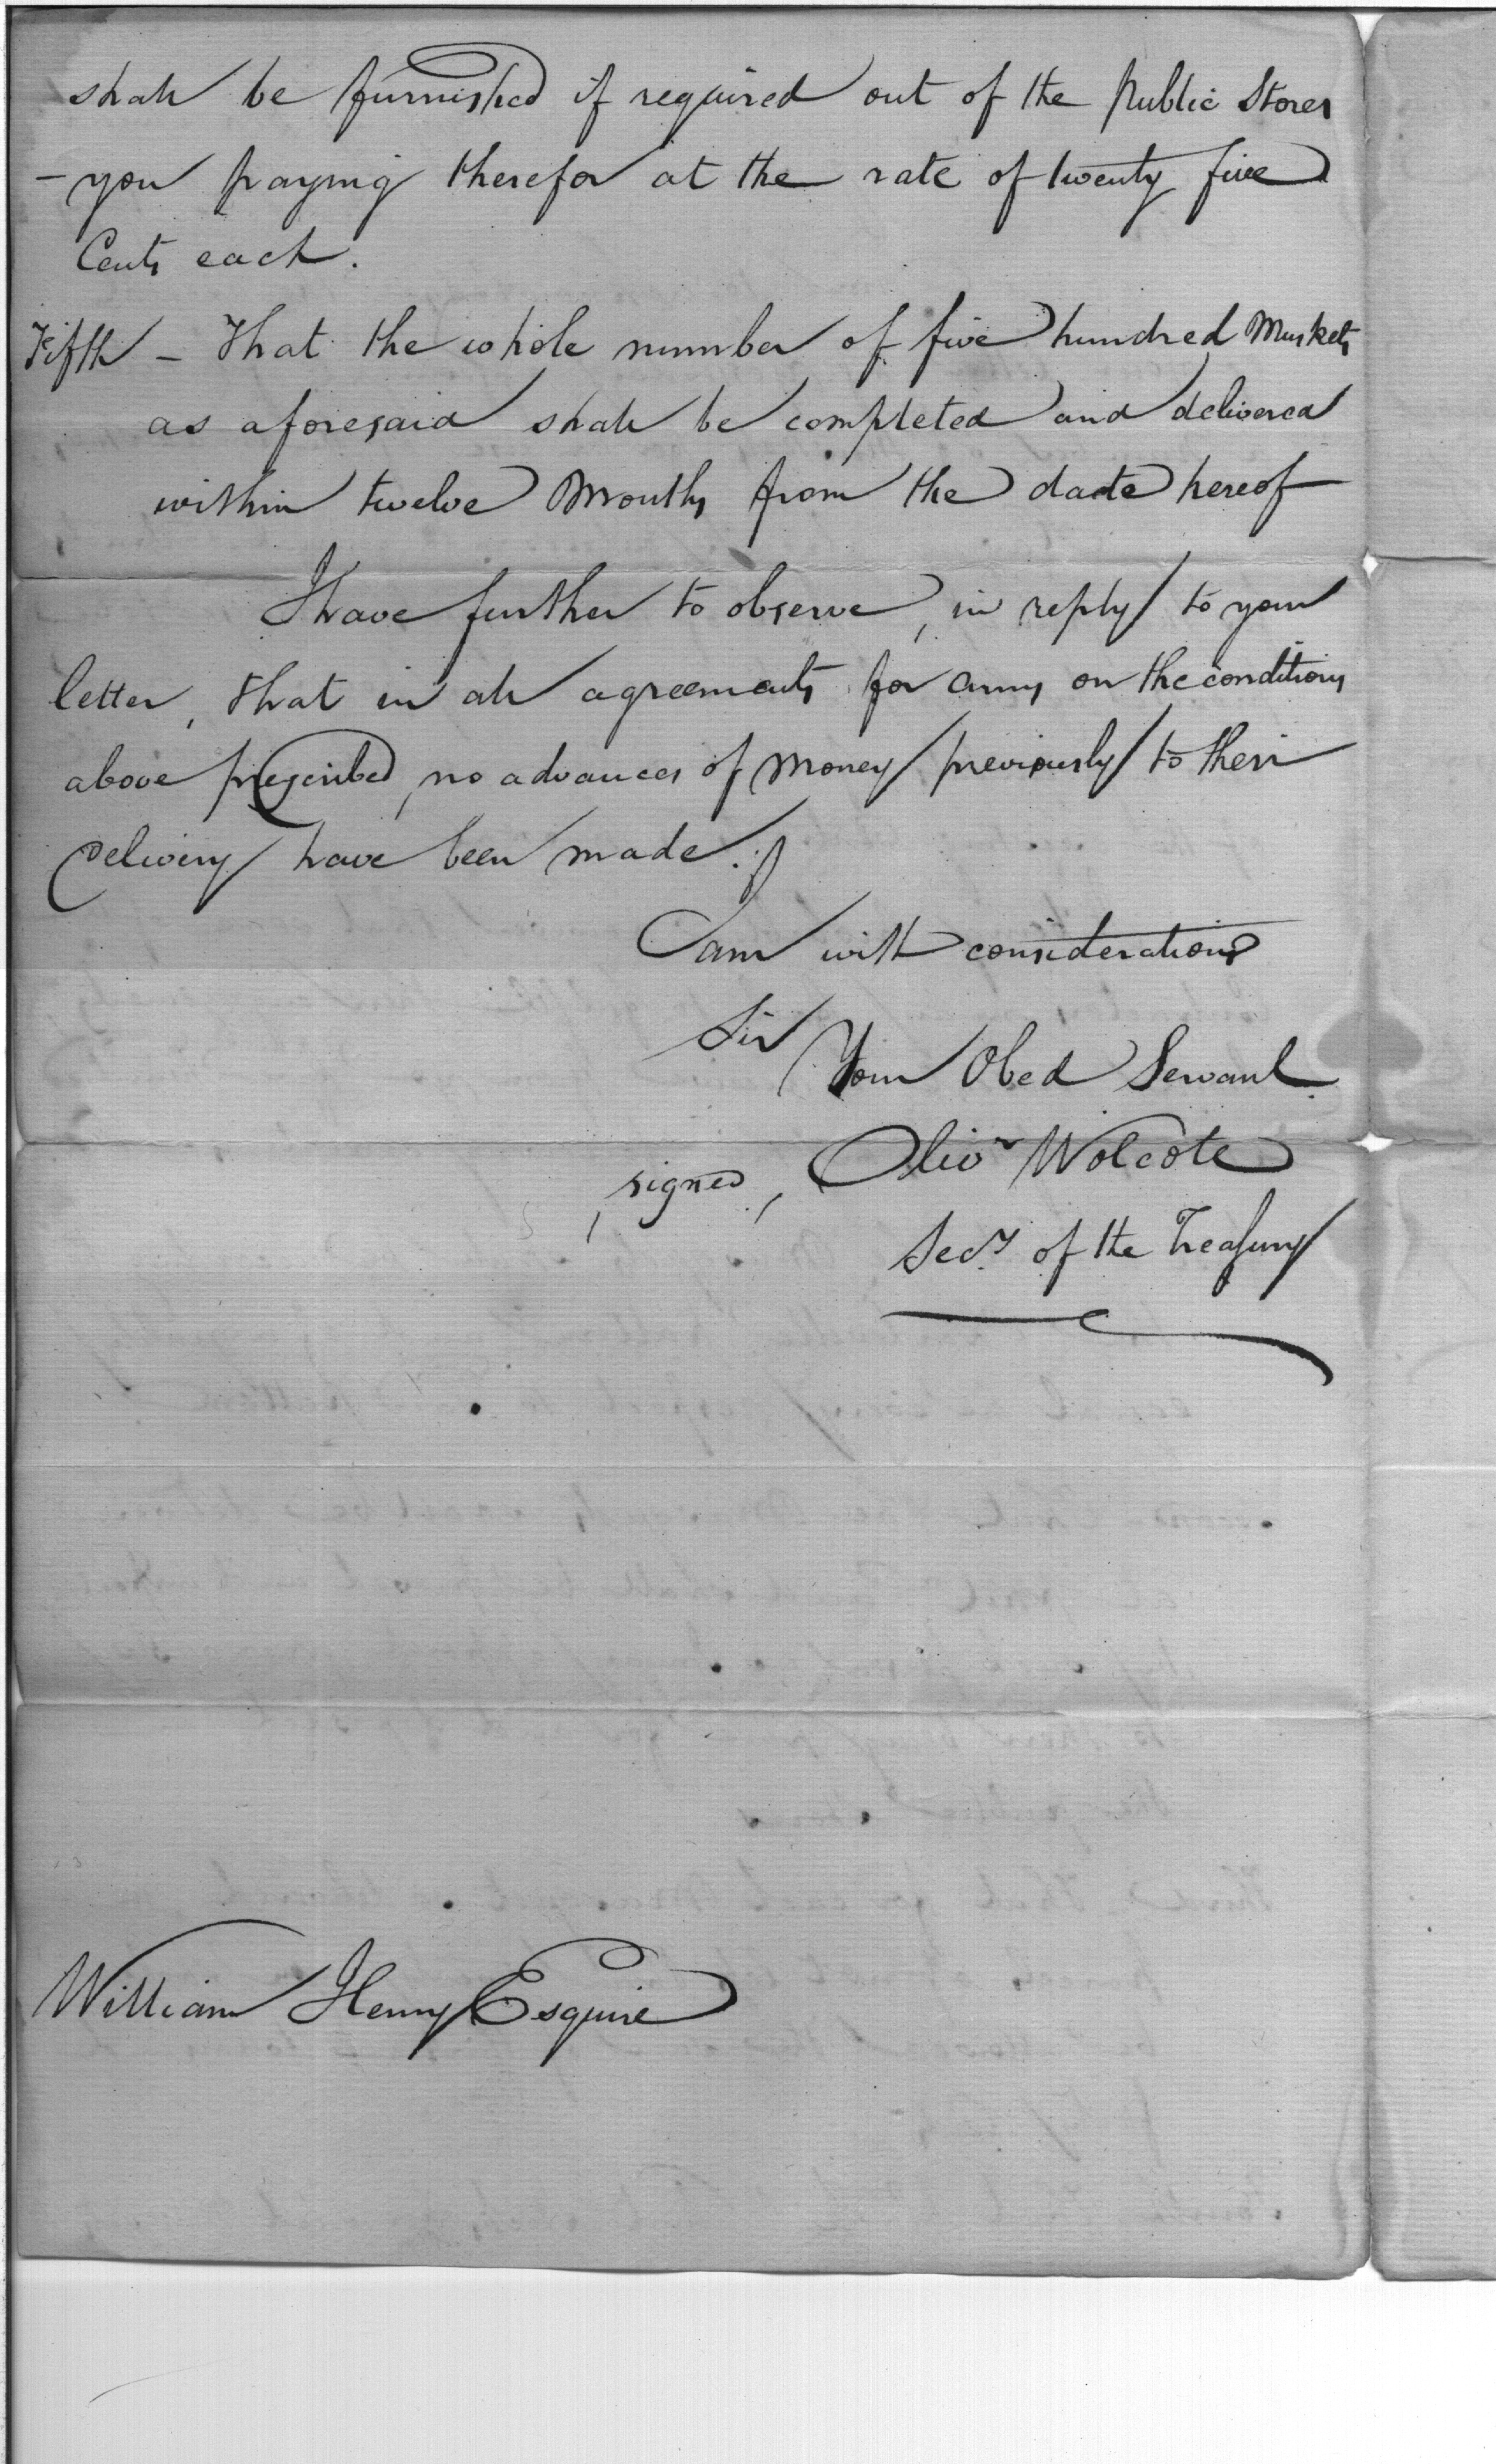 shall be furnished if required out of the Public Stores
– you paying therefor at the rate of twenty five
Cents each.
Fifth – That the whole number of five hundred Muskets
as aforesaid shall be completed and delivered
within twelve Months from the date hereof
I have further to observe, in reply to your
letter, that in all agreements for arms on the conditions
above prescribed, no advances of Money previously to their
Delivery have been made.
I am with consideration
Sir
Your Obed Servant
signed, Olivr Wolcote
Secy of the Treasury
William Henry Esquire